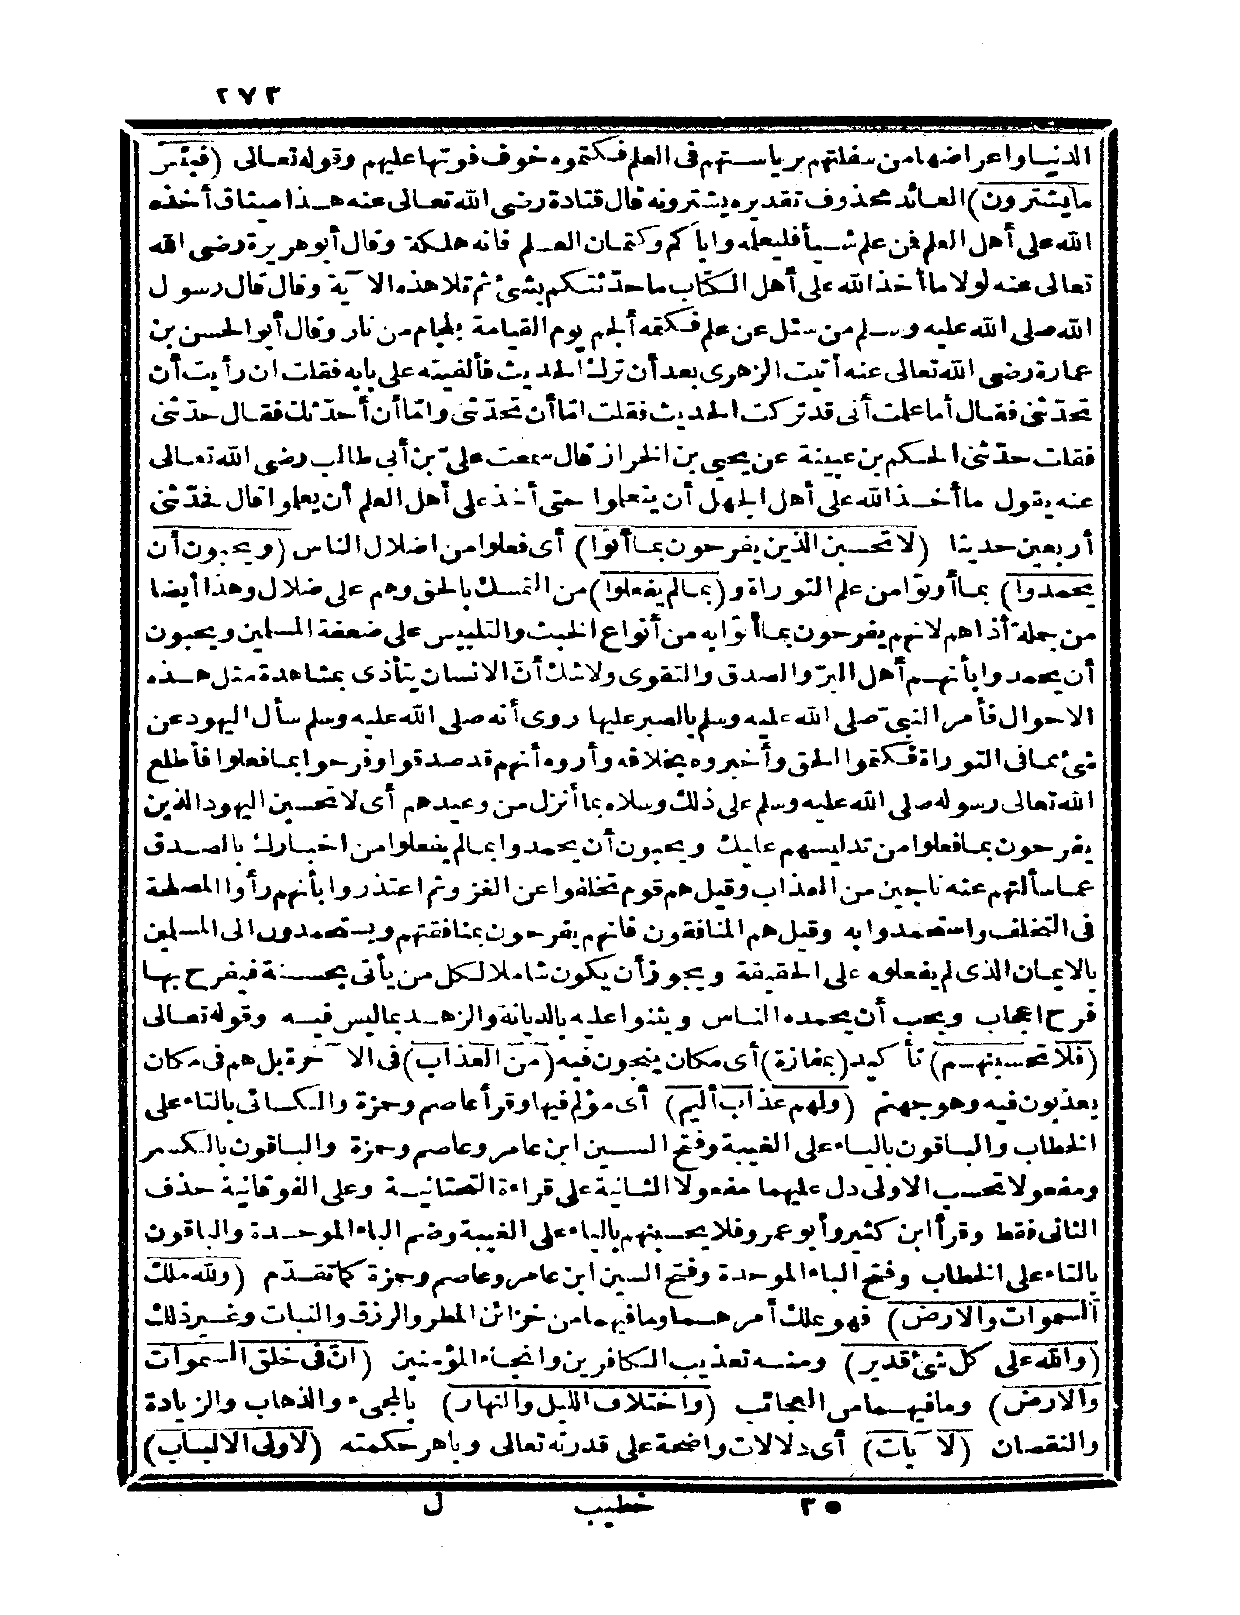 ٢٧٣
الدنيا واعراضها من سفلتهم برياستهم فى العلم فكتموه خوف فوتها عليهم وقوله تعالى (فبئس
ما يشترون) العائد محذوف تقديره يشترونه قال قتادة رضى الله تعالى عنه هذا ميثاق أخذه
الله على أهل العلم فمن علم شيأ فليعلمه واياكم وكتمان العلم فانه هلكة وقال أبو هريرة رضى الله
تعالى عنه لولا ما أخذ الله على أهل الكتاب ما حدثتكم بشئ ثم تلا هذه الآية وقال قال رسول
الله صلى الله عليه وسلم من سئل عن علم فكتمه ألجم يوم القيامة بلجام من نار وقال أبو الحسن بن
عمارة رضى الله تعالى عنه أتيت الزهرى بعد أن ترك الحديث فألفيته على بابه فقلت ان رأيت أن
تحدّثنى فقال أما علمت أنى قد تركت الحديث فقلت امّا أن تحدّثنى وامّا أن أحدّثك فقال حدّثنى
فقلت حدّثنى الحكم بن عيينة عن يحيى بن الخراز قال سمعت علىّ بن أبى طالب رضى الله تعالى
عنه يقول ما أخذ الله على أهل الجهل أن يتعلموا حتى أخذ على أهل العلم أن يعلموا قال فحدّثنى
أربعين حديثا (لا تحسبنّ الذين يفرحون بما أتوا) أى فعلوا من اضلال الناس (ويحبون أن
يحمدوا) بما أوتوا من علم التوراة و (بما لم يفعلوا) من التمسك بالحق وهم على ضلال وهذا أيضا
من جملة أذاهم لانهم يفرحون بما أتوا به من أنواع الخبث والتلبيس على ضعفة المسلمين ويحبون
أن يحمدوا بأنهم أهل البرّ والصدق والتقوى ولا شك أنّ الانسان يتأذى بمشاهدة مثل هذه
الاحوال فأمر النبىّ صلى الله عليه وسلم بالصبر عليها روى أنه صلى الله عليه وسلم سأل اليهود عن
شئ مما فى التوراة فكتموا الحق وأخبروه بخلافه وأروه أنهم قد صدقوا وفرحوا بما فعلوا فأطلع
الله تعالى رسوله صلى الله عليه وسلم على ذلك وسلاه بما أنزل من وعيدهم أى لا تحسبن اليهود الذين
يفرحون بما فعلوا من تدليسهم عليك ويحبون أن يحمدوا بما لم يفعلوا من اخبارك بالصدق
عما سألتهم عنه ناجين من العذاب وقيل هم قوم تخلفوا عن الغزو ثم اعتذروا بأنهم رأوا المصلحة
فى التخلف واستحمدوا به وقيل هم المنافقون فانهم يفرحون بمنافقتهم ويستحمدون الى المسلمين
بالايمان الذى لم يفعلوه على الحقيقة ويجوز أن يكون شاملا لكل من يأتى بحسنة فيفرح بها
فرح اعجاب ويحب أن يحمده الناس ويثنوا عليه بالديانة والزهد بما ليس فيه وقوله تعالى
(فلا تحسبنهم) تأكيد (بمفازة) أى مكان ينجون فيه (من العذاب) فى الآخرة بل هم فى مكان
يعذبون فيه وهو جهنم (ولهم عذاب أليم) أى مؤلم فيها وقرأ عاصم وحمزة والكسائى بالتاء على
الخطاب والباقون بالياء على الغيبة وفتح السين ابن عامر وعاصم وحمزة والباقون بالكسر
ومفعولا تحسب الاولى دل عليهما مفعولا الثانية على قراءة التحتانية وعلى الفوقانية حذف
الثانى فقط وقرأ ابن كثير وأبو عمرو فلا يحسبنهم بالياء على الغيبة وضم الباء الموحدة والباقون
بالتاء على الخطاب وفتح الباء الموحدة وفتح السين ابن عامر وعاصم وحمزة كما تقدّم (ولله ملك
السموات والارض) فهو يملك أمرهما وما فيهما من خزائن المطر والرزق والنبات وغير ذلك
(والله على كل شئ قدير) ومنه تعذيب الكافرين وانجاء المؤمنين (انّ فى خلق السموات
والارض) وما فيهما من العجائب (واختلاف الليل والنهار) بالمجىء والذهاب والزيادة
والنقصان (لآيات) أى دلالات واضحة على قدرته تعالى وباهر حكمته (لاولى الالباب)
٣٥ خطيب ل